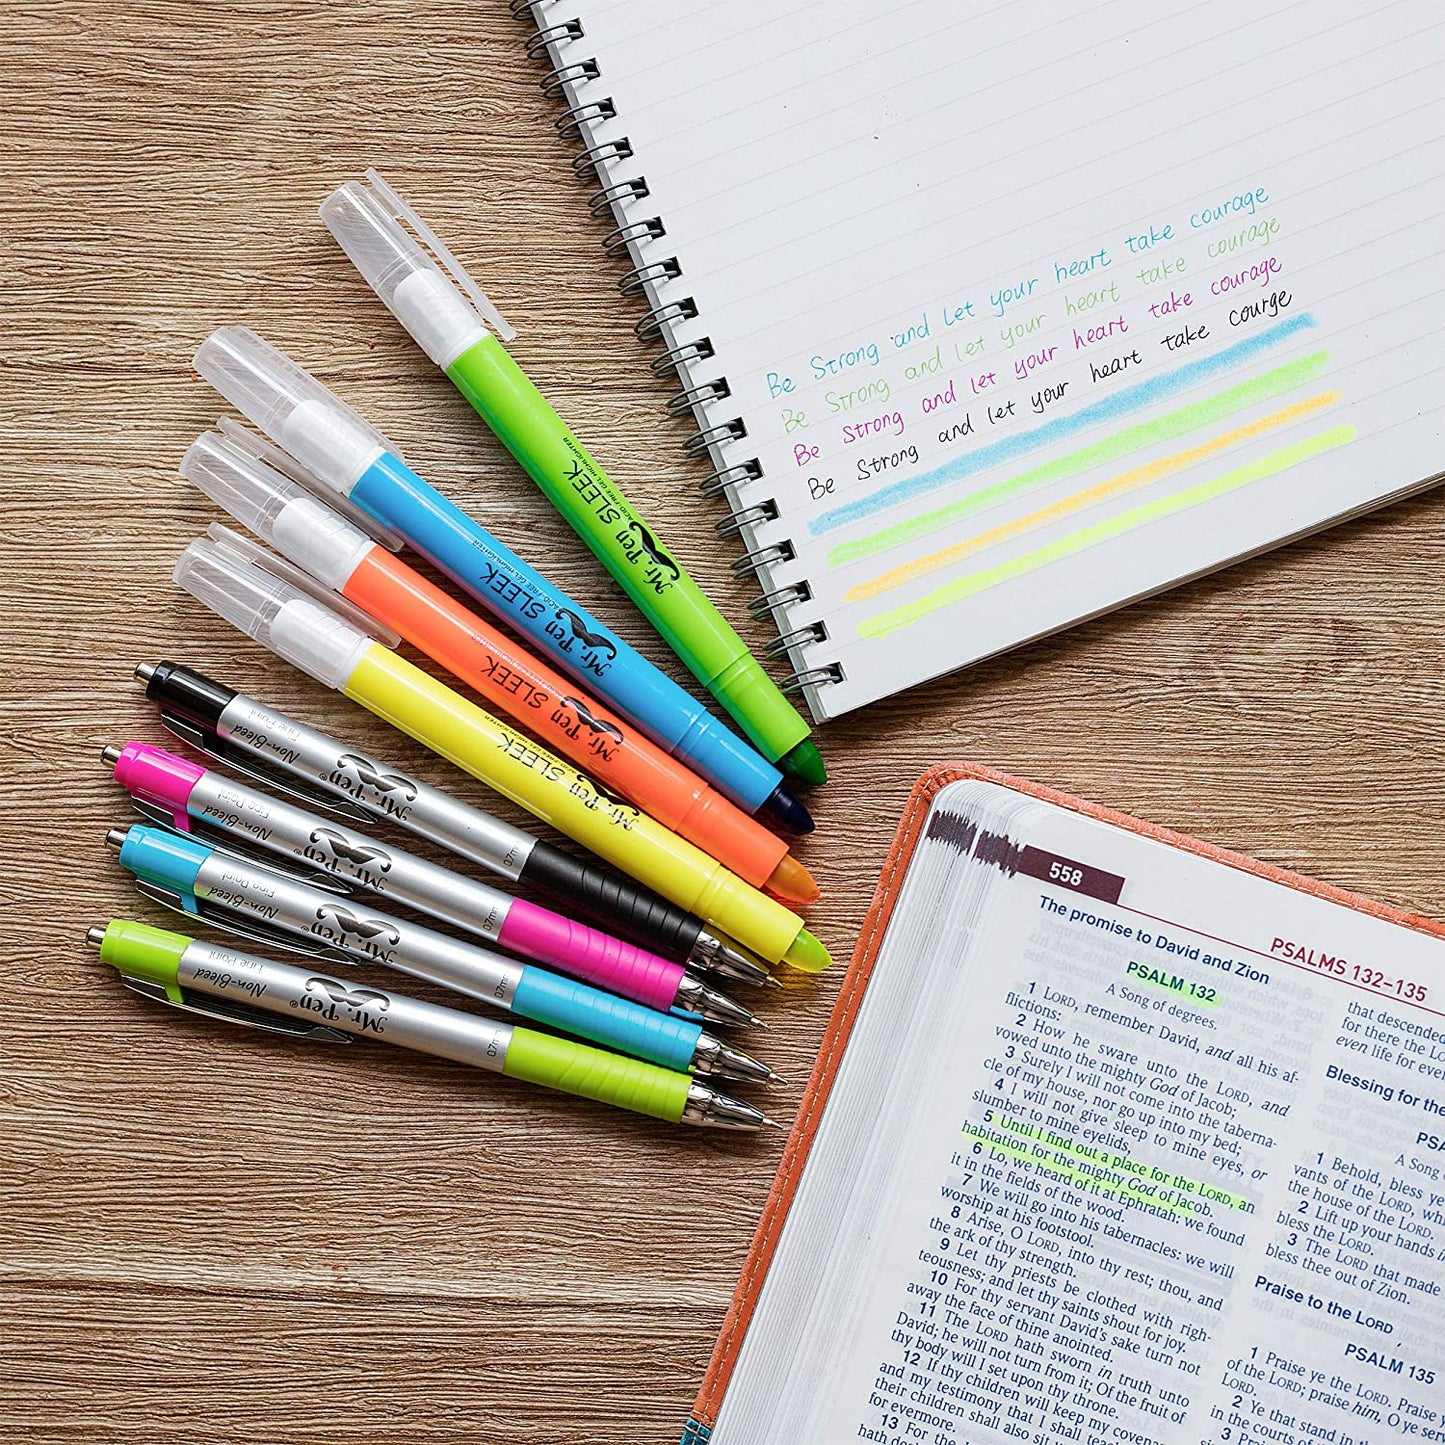 Be Strong and let your heart take courage
Be Strong and let your heart take courage
Be Strong and let your heart take courage
Be Strong and let your heart take courge
Mr. Pen SLEEK
ACID-FREE GEL HIGHLIGHTER
Mr. Pen SLEEK
ACID-FREE GEL HIGHLIGHTER
Mr. Pen SLEEK
Mr. Pen SLEEK
ACID-FREE GEL HIGHLIGHTER
Mr. Pen®
Non-Bleed
Fine Point
0.7m
Mr. Pen®
Non-Bleed
Fine Point
0.7m
Mr. Pen®
Non-Bleed
Fine Point
0.7m
Mr. Pen®
Non-Bleed
Fine Point
0.7m
558
PSALMS 132-135
The promise to David and Zion
PSALM 132
A Song of degrees.
1 LORD, remember David, and all his af-
flictions:
2 How he sware unto the LORD, and
vowed unto the mighty God of Jacob;
3 Surely I will not come into the taberna-
cle of my house, nor go up into my bed;
4 I will not give sleep to mine eyes, or
slumber to mine eyelids,
5 Until I find out a place for the LORD, an
habitation for the mighty God of Jacob.
6 Lo, we heard of it at Ephratah: we found
it in the fields of the wood.
7 We will go into his tabernacles: we will
worship at his footstool.
8 Arise, O LORD, into thy rest; thou, and
the ark of thy strength.
9 Let thy priests be clothed with righ-
teousness; and let thy saints shout for joy.
10 For thy servant David's sake turn not
away the face of thine anointed.
11 The LORD hath sworn in truth unto
David; he will not turn from it; Of the fruit of
thy body will I set upon thy throne.
12 If thy children will keep my covena
and my testimony that I shall teac
their children shall also sit
for evermore.
13 For the
hath
that descended
for there the LO
even life for ever
Blessing for the
PSA
A Song
1 Behold, bless ye
vants of the LORD, wh
the house of the LORD.
2 Lift up your hands
bless the LORD.
3 The LORD that made
bless thee out of Zion.
Praise to the LORD
PSALM 135
1 Praise ye the LORD. Praise y
of the LORD; praise him, O ye ser
LORD.
2 Ye that stand in
in the courts of
3 Prai